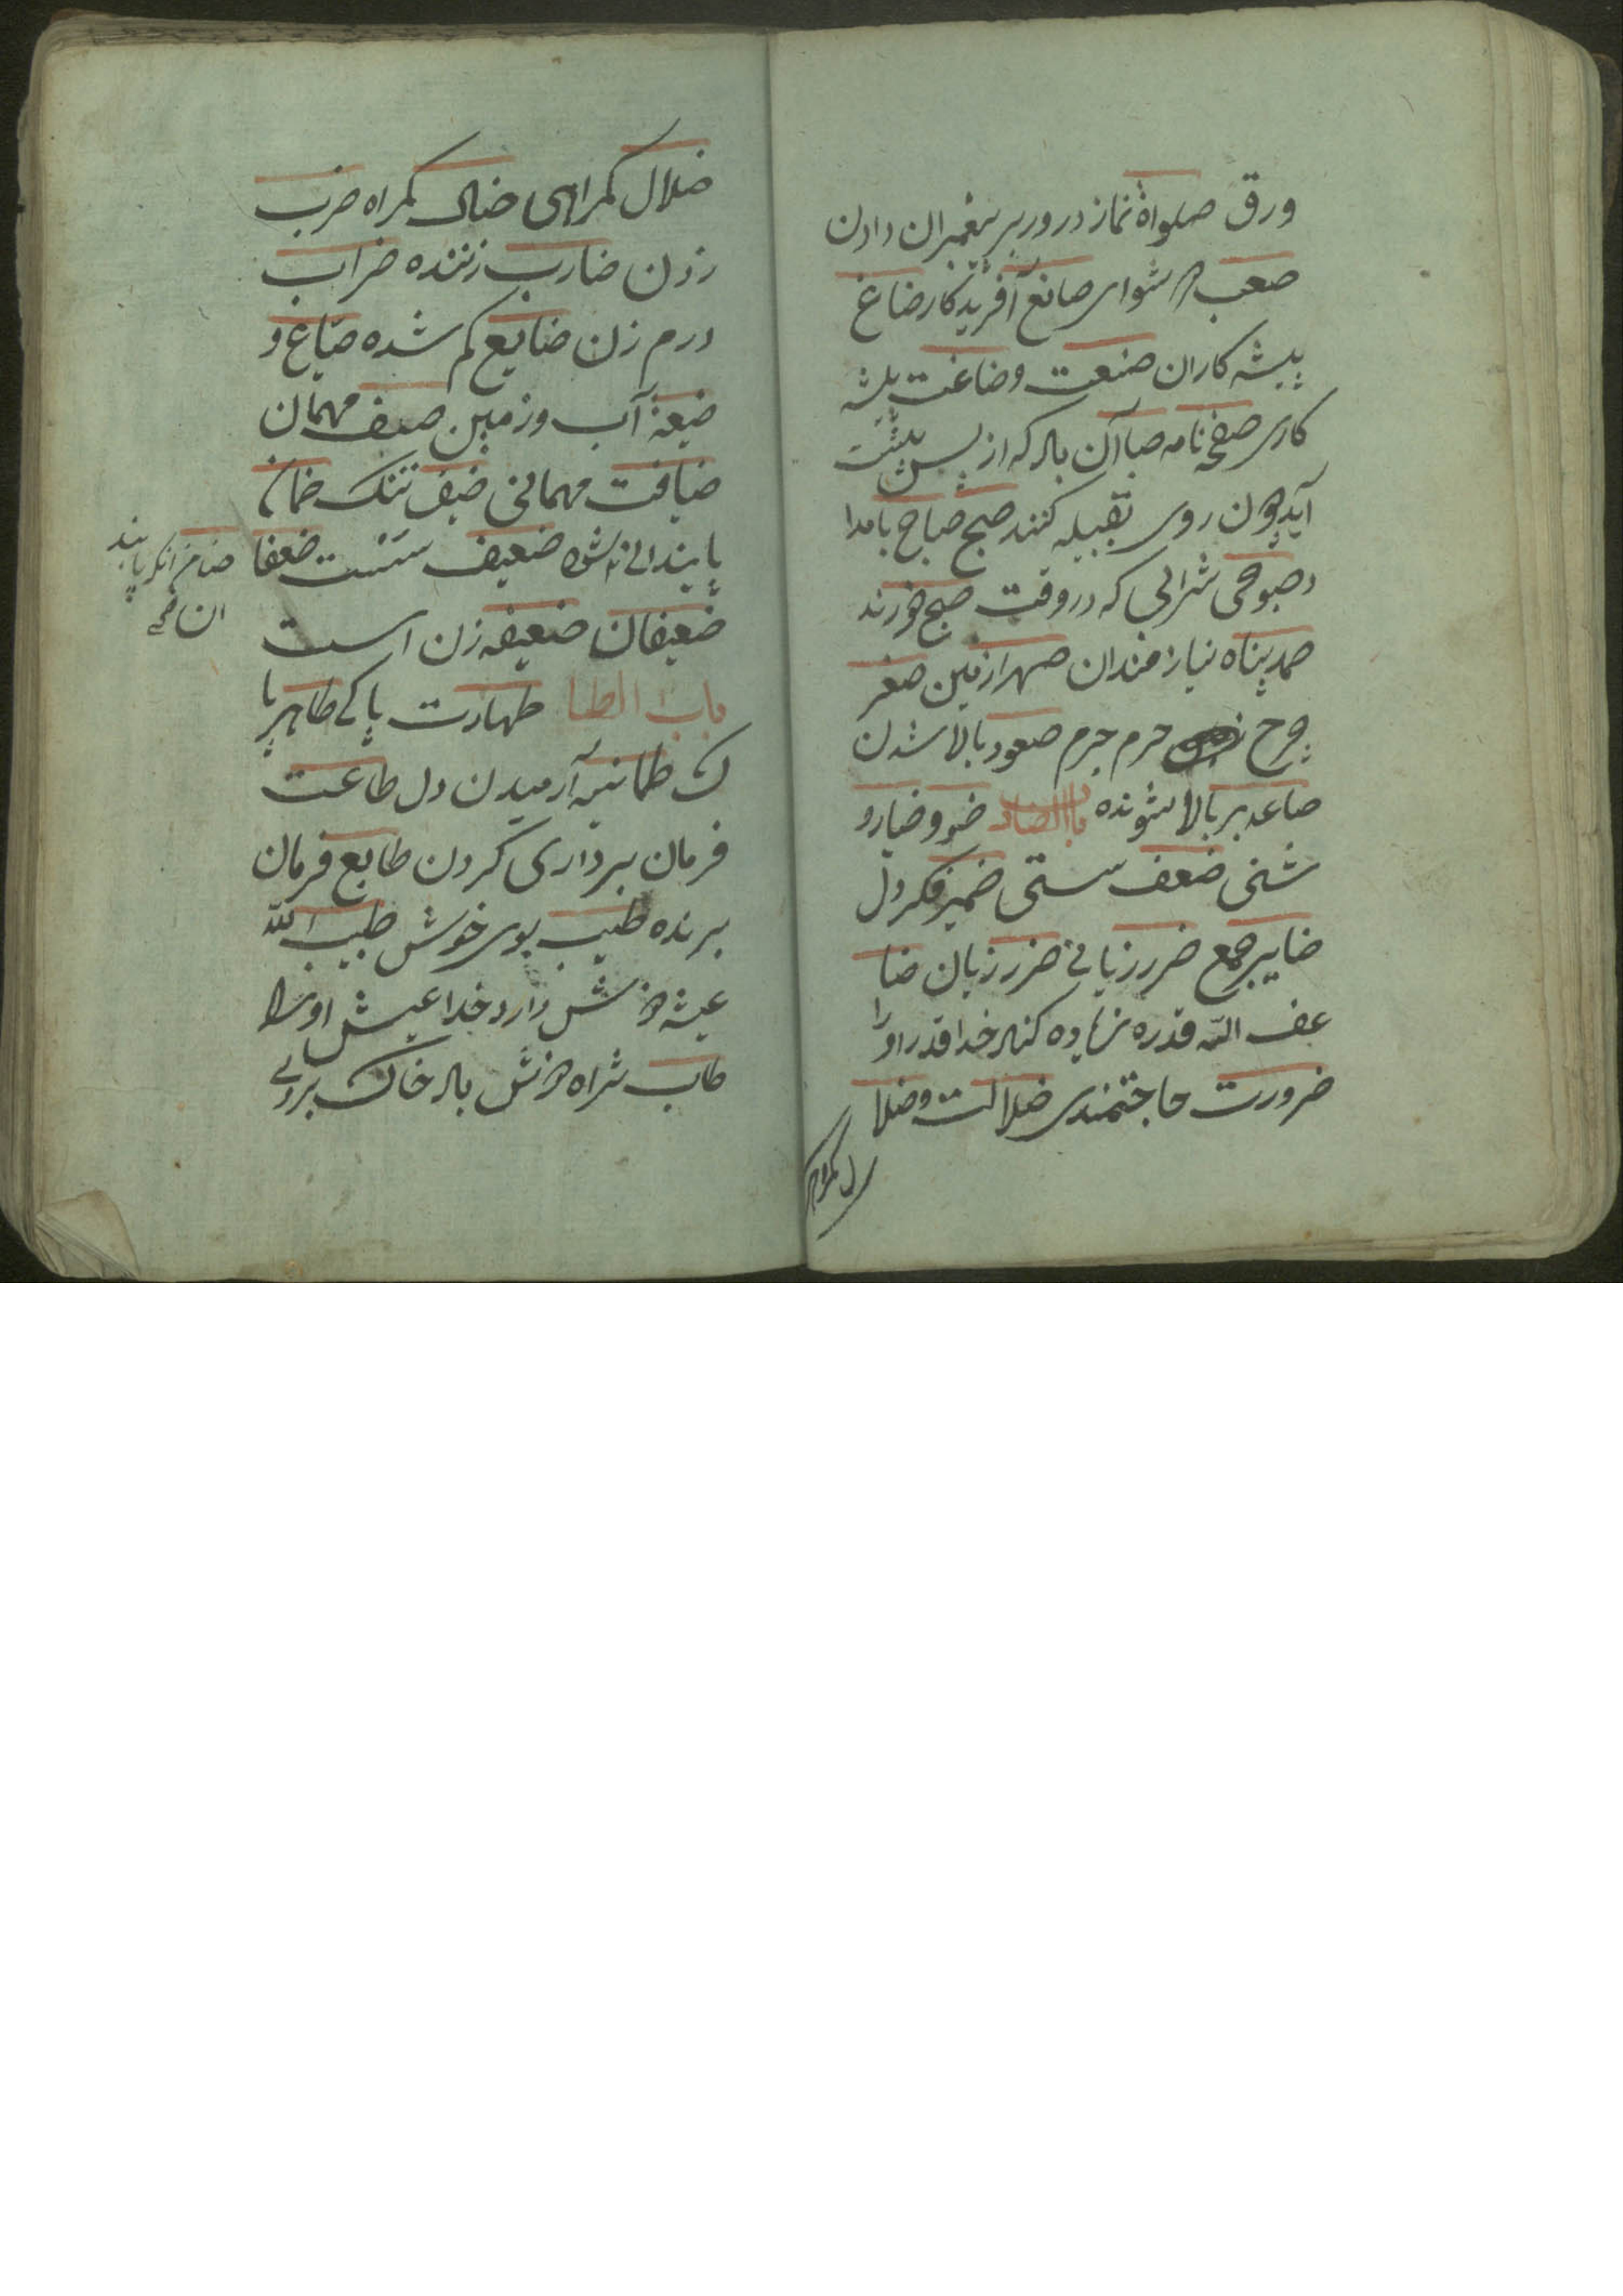 ورق صلواة نماز درور بر پیغمبران دادن
صعب دشوای صانع آفریدکار ضاغ
پیشه کاران صنعت وضاغت پیشه
کاری صفحه نامه صبا آن باد که از پس پشت
آید چون روی بقبیله کنند صبح صباح بامدا
د صبوحی شرابی که در وقت صبح خورند
صمد پناه نیازمندان صهر ازمین صغر
چرح حرم جرم صعود بالا شدن
صاعد بر بالا شونده باب الضاد ضو و ضیا رو
شنی ضعف سستی ضمیر فکر دل
ضمایر جمع ضرر زیانی ضرر زیان ضا
عف الله قدره زیاده کند خدا قدر اورا
ضرورت حاجتمندی ضلالت و ضلا
ل کمراهی
ضلال کمراهی ضال کمراه ضرب
زدن ضارب زننده ضراب
درم زن ضایع کم شده ضیاع و
ضیعة آب وزمین ضیف مهمان
ضیافت مهمانی ضیق تنک ضمان
پایندانی ضعیف سست ضعفا
ضعیفان ضعیفه زن است
باب الطا طهارت پاکی طاهر پا
ک طمانیه آرمیدن دل طاعت
فرمان برداری کردن طایع فرمان
برنده طیب بوی خوش طیب الله
عیشه خوش دارد خدا عیش اورا
طاب ثراه خوش باد خاک بروی
ضامن انکه پایند
ان